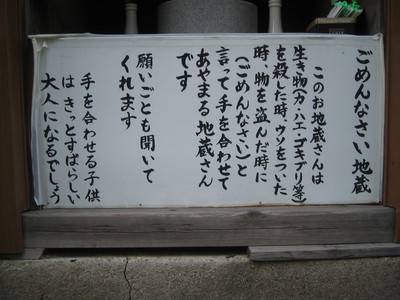 ごめんなさい地蔵
このお地蔵さんは
生き物(カ・ハエ・ゴキブリ等)
を殺した時、ウソをついた
時、物を盗んだ時に
(ごめんなさい)と
言って手を合わせて
あやまる地蔵さん
です
願いごとも聞いて
くれます
手を合わせる子供
はきっとすばらしい
大人になるでしょう